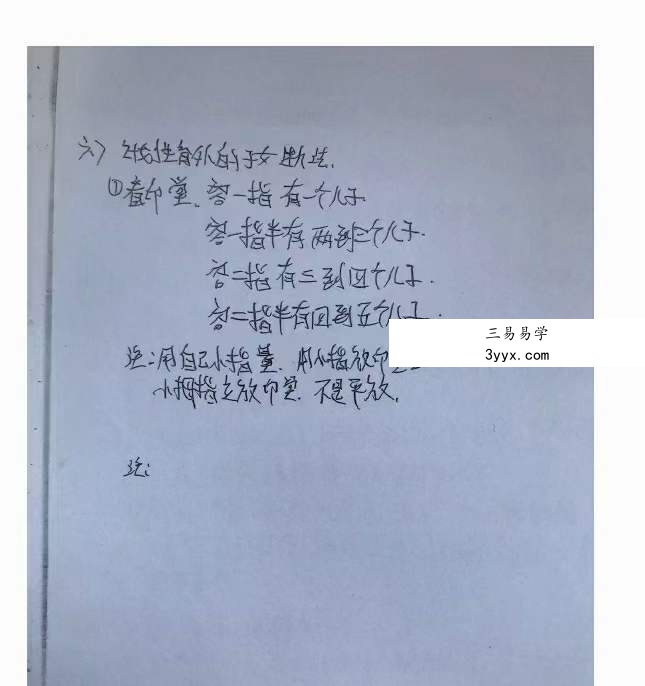 六〉 的子女断法.
①看印堂、容一指 有一个儿子.
容一指半有 两到三个儿子.
容二指 有三到四个儿子.
容二指半有四到五个儿子.
三易易学
3yyx.com
注:用自己小指量. 用小指放印
小拇指立放印堂. 不是平放.
注: